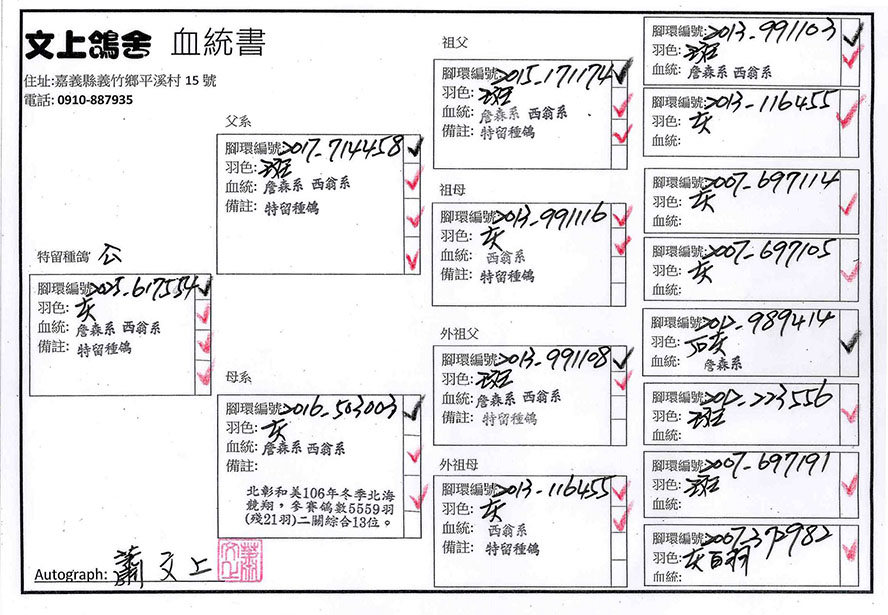 文上鴿舍 血統書
住址:嘉義縣義竹鄉平溪村 15 號
電話: 0910-887935
特留種鴿 公
腳環編號:2025-617554
羽色: 灰
血統: 詹森系 西翁系
備註: 特留種鴿
父系
腳環編號:2017-714458
羽色: 斑
血統: 詹森系 西翁系
備註: 特留種鴿
母系
腳環編號:2016-503003
羽色: 灰
血統: 詹森系 西翁系
備註:
北彰和美106年冬季北海
競翔，參賽鴿數5559羽
(殘21羽)二關綜合13位。
祖父
腳環編號:2015-171174
羽色: 斑
血統: 詹森系 西翁系
備註: 特留種鴿
祖母
腳環編號:2013-991116
羽色: 灰
血統: 西翁系
備註: 特留種鴿
外祖父
腳環編號:2013-991108
羽色: 斑
血統: 詹森系 西翁系
備註: 特留種鴿
外祖母
腳環編號:2013-116455
羽色: 灰
血統: 西翁系
備註: 特留種鴿
腳環編號:2013-991103
羽色: 斑
血統: 詹森系 西翁系
腳環編號:2013-116455
羽色: 灰
血統:
腳環編號:2007-697114
羽色: 灰
血統:
腳環編號:2007-697105
羽色: 灰
血統:
腳環編號:2012-989414
羽色: 石灰
血統: 詹森系
腳環編號:2012-223556
羽色: 斑
血統:
腳環編號:2007-697191
羽色: 斑
血統:
腳環編號:2007-372982
羽色: 灰白羽
血統:
Autograph: 蕭文上
蕭文上